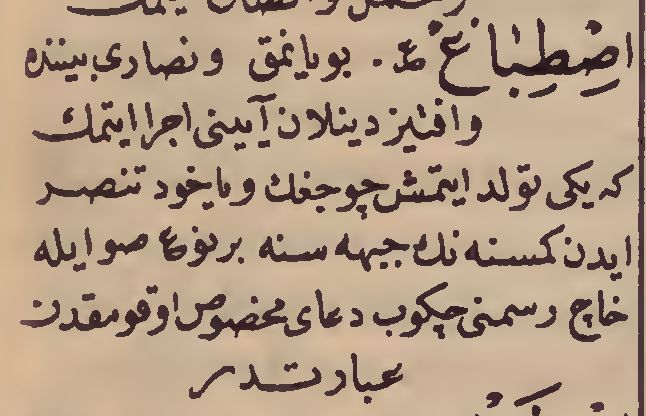 اصْطِبَاغ ع. بويانمق و نصارى بيننده
وافتيز دينلان آيينى اجرا ايتمك
كه يكى تولد ايتمش چوجغك و ياخود تنصر
ايدن كمسنه نك جبهه سنه بر نوع صو ايله
خاچ رسمنى چكوب دعاى مخصوص اوقومقدن
عبارتدر